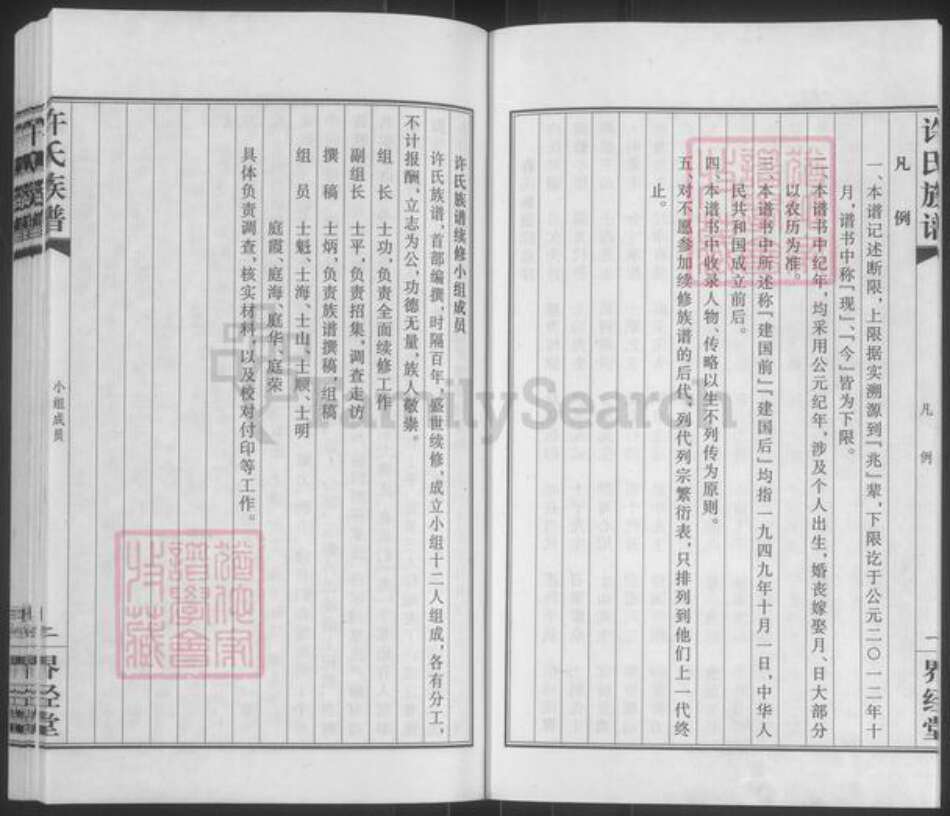 许氏族谱
凡例
一
界经堂
凡 例
一、本谱记述断限,上限据实溯源到『兆』辈,下限讫于公元二〇一二年十
月,谱书中称『现』、『今』皆为下限。
二、本谱书中纪年,均采用公元纪年,涉及个人出生,婚丧嫁娶月、日大部分
以农历为准。
三、本谱书中所述称『建国前』『建国后』均指一九四九年十月一日,中华人
民共和国成立前后。
四、本谱书中收录人物、传略以生不列传为原则。
五、对不愿参加续修族谱的后代,列代列宗繁衍表,只排列到他们上一代终
止。
许氏族谱续修小组成员
许氏族谱,首部编撰,时隔百年,盛世续修,成立小组十二人组成,各有分工,
不计报酬,立志为公,功德无量,族人敬崇。
组 长 士功,负责全面续修工作
副组长 士平,负责招集,调查走访
撰 稿 士炳,负责族谱撰稿,组稿
组 员 士魁、士海、士山、士顺、士明
庭霞、庭海、庭华、庭荣
具体负责调查,核实材料,以及校对付印等工作。
许氏族谱
小组成员
界经堂
FamilySearch